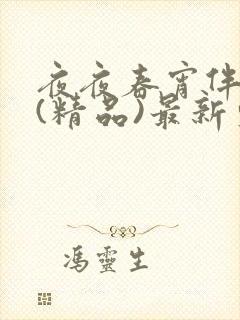 夜夜春宵伴
(精品)最新
冯靈生